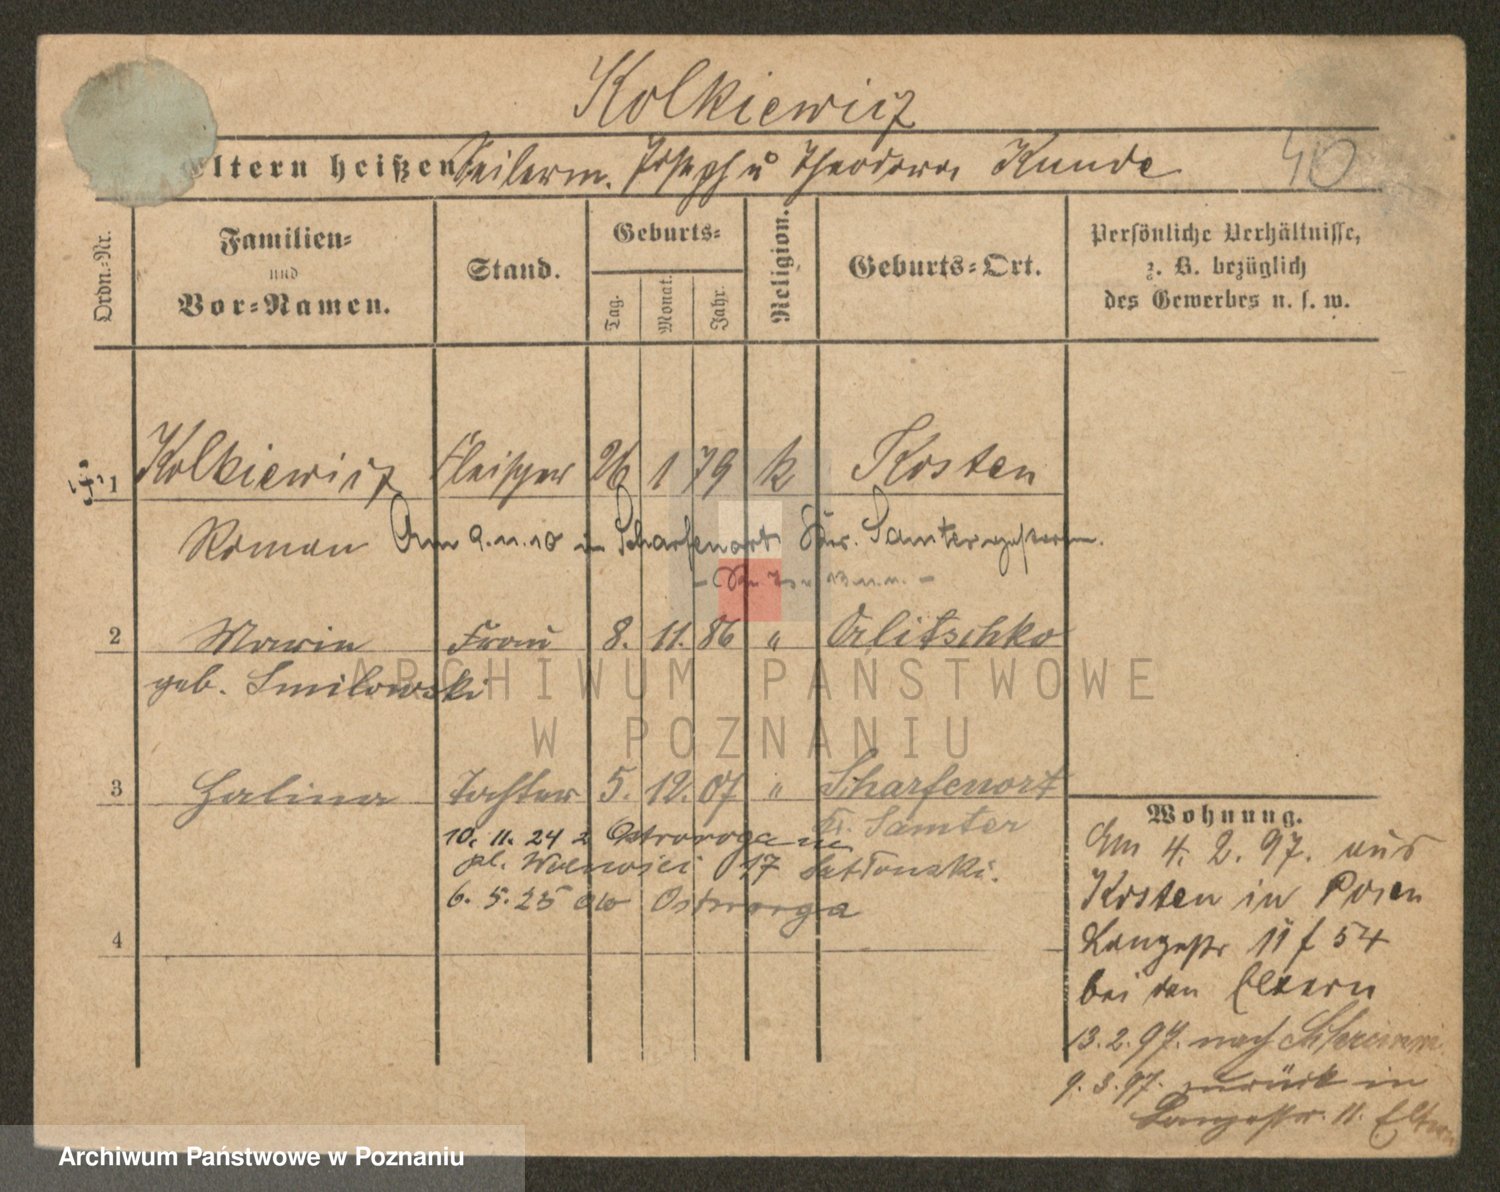 Kolkiewicz
Eltern heißen Seilerm. Joseph u Theodora Kunde
40
Ordn.-Nr.
Familien-
und
Vor-Namen.
Stand.
Geburts-
Tag.
Monat.
Jahr.
Religion.
Geburts-Ort.
Persönliche Verhältnisse,
z. B. bezüglich
des Gewerbes u. s. w.
1 Kolkiewicz Fleischer 26 1 79 k Kosten
Roman Am 9.11.10 in Scharfenort Kr. Samter gestorben.
2 Maria Frau 8. 11. 86 " Orlitschko
geb. Smilowski
3 Halina Tochter 5. 12. 07 " Scharfenort
Kr. Samter
10. 11. 24 z Ostroroga
pl. Wolności 17
6. 5. 25 do Ostroroga
4
Wohnung.
Am 4. 2. 97. aus
Kosten in Posen
Langestr 11 f 54
bei den Eltern
13. 2. 97. nach Schrimm
9. 3. 97. zurück in
Langestr. 11. Eltern
ARCHIWUM PAŃSTWOWE
W POZNANIU
Archiwum Państwowe w Poznaniu